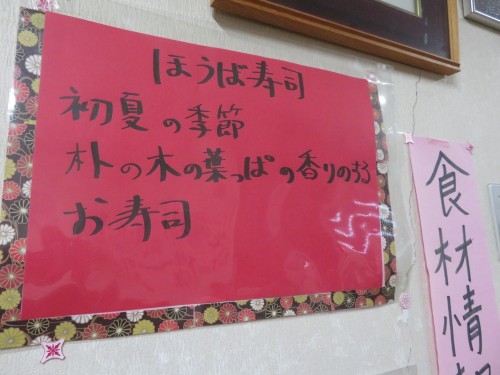 ほうば寿司
初夏の季節
朴の木の葉っぱの香りのする
お寿司
食材情